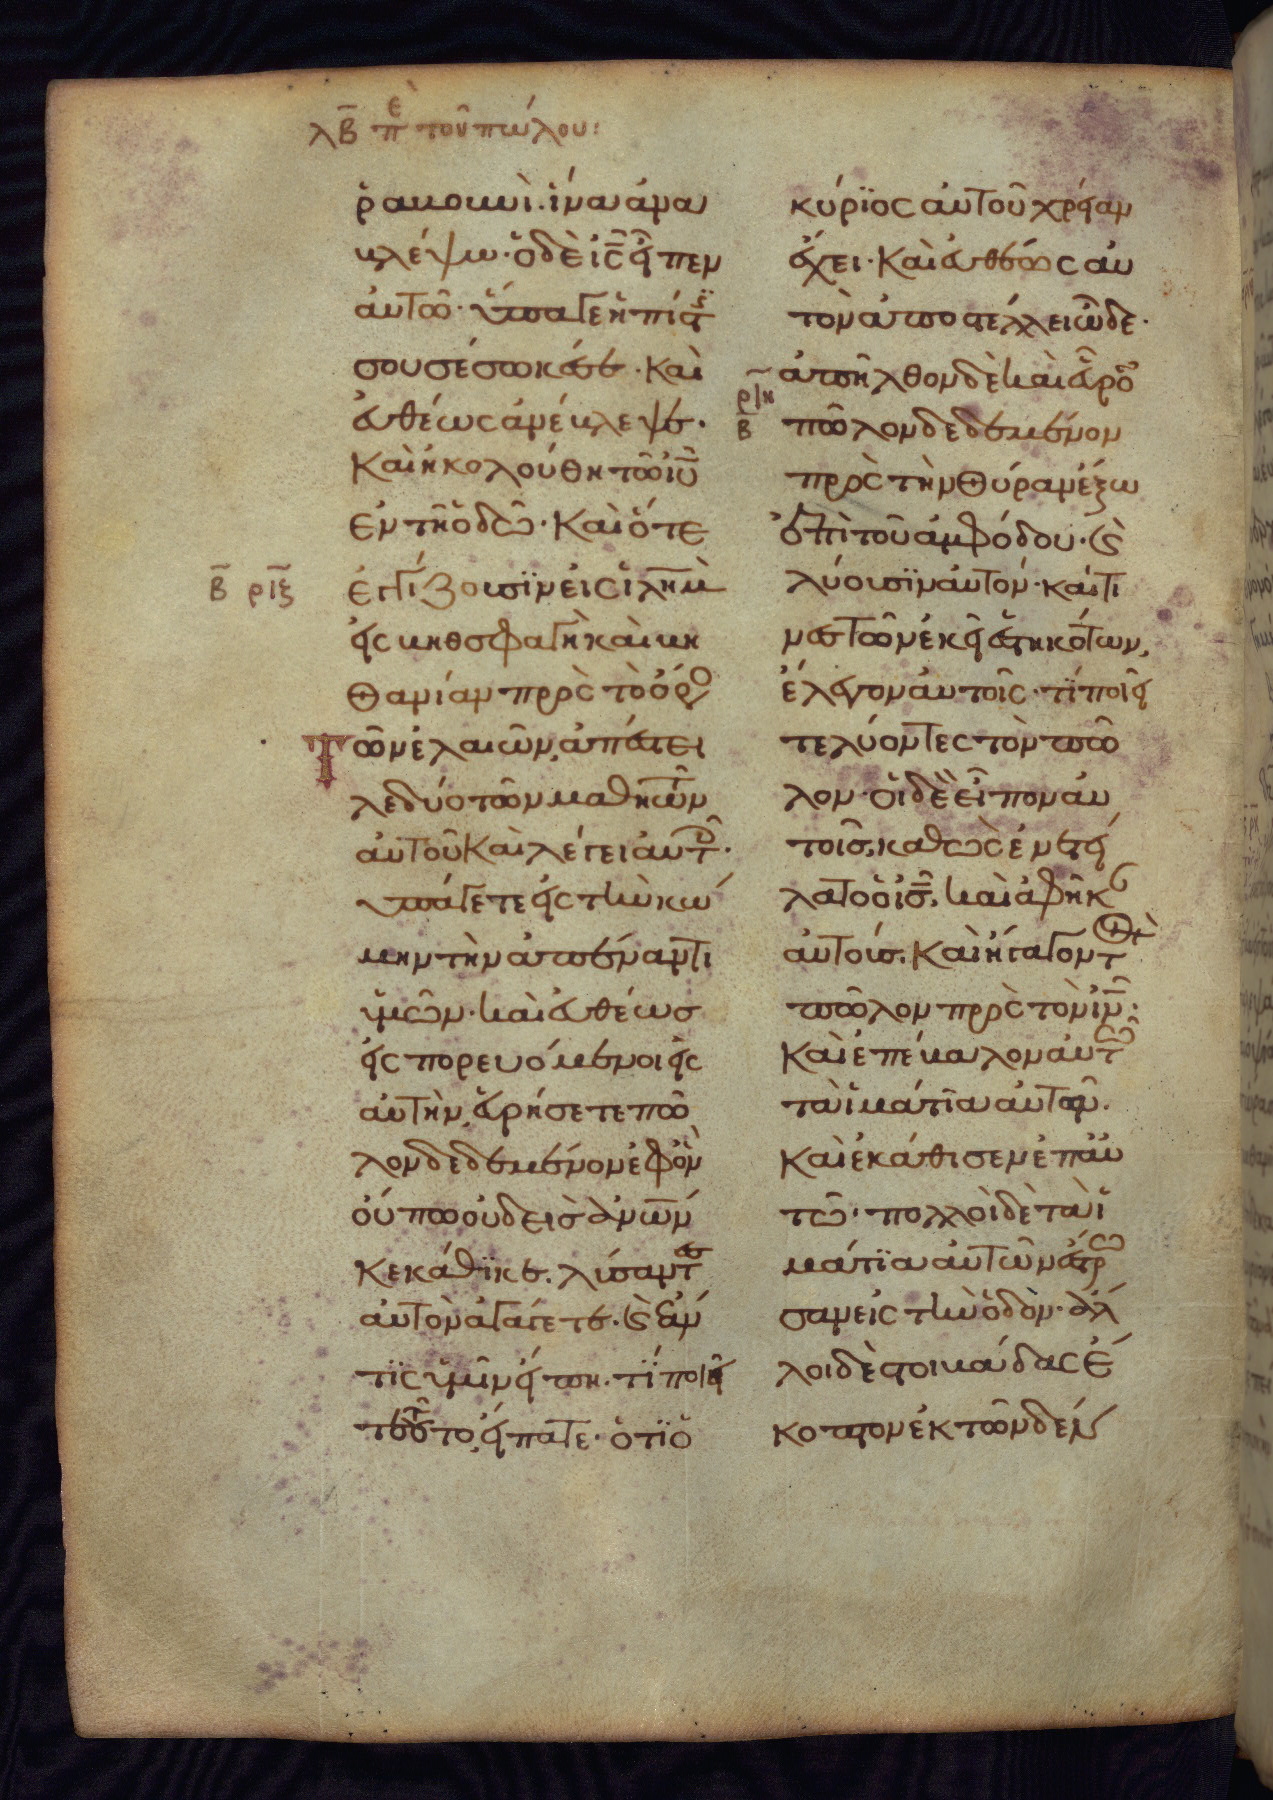 λβ πε τοῦ πώλου:
ραβουνὶ. ἵνα ἀνα
βλέψω· ὁ δὲ ις εἶπεν
αὐτῶ· ὕπαγε ἡ πίστϊς
σου σέσωκέ σε· Καὶ
ἐυθέως ἀνέβλεψε·
Καὶ ἠκολούθη τῶ ιυ
ἐν τῆ ὁδῶ· Καὶ ὅτε
β ριξ
ἐγγίζουσϊν εἰς ἱλημ
εἰς βηθσφαγὴ καὶ βη
θανίαν πρὸς τὸ ὄρος
Τῶν ἐλαιῶν, ἀποστέλ
λει δύο τῶν μαθητῶν
αὐτοῦ Καὶ λέγει ἀυτοῖς·
ὑπάγετε εἰς τὴν κώ
μην τὴν ἀπέναντι
ὑμῶν· καὶ ἐυθέως
εἰς πορευόμενοι εἰς
αὐτὴν, ἑυρήσετε πῶ
λον δεδεμένον ἐφ ὃν
οὔπω οὐδεὶς ἀνων
κεκάθϊκε. λύσαντες
αὐτὸν ἀγάγετε. Καὶ ἐάν
τϊς ὑμῖν εἴπη. τΐ ποιεῖτε
τοῦτο, εἴπατε· ὅτϊ ὁ
κύρϊος ἀυτοῦ χρείαν
ἔχει· Καὶ ἐυθέως αὐ
τὸν ἀποστέλλει ὧδε·
ριη
β
ἀπῆλθον δὲ καὶ εὗρον
πῶλον δεδεμένον
πρὸς τὴν θύραν ἔξω
ἐπὶ τοῦ ἀμφόδου· Καὶ
λύουσϊν αὐτόν· καί τι
νες τῶν ἐκεῖ ἑστηκότων,
ἔλεγον ἀυτοῖς· τΐ ποιεῖ
τε λύοντες τὸν πῶ
λον· οἱ δὲ εἶπον ἀυ
τοῖς, καθὼς ἐνετεί
λατο ὁ ις. καὶ ἀφῆκαν
αὐτούς. Καὶ ἤγαγον τὸν
πῶλον πρὸς τὸν ιν·
Καὶ ἐπέβαλον ἀυτῶ
τὰ ἱμάτϊα αὐτῶν.
Καὶ ἐκάθισεν ἐπ ἀυ
τῶ· πολλοὶ δὲ τὰ ἱ
μάτϊα αὐτῶν ἔστρω
σαν εἰς τὴν ὁδὸν· ἀλ
λοι δὲ στοιβάδας ἔ
κοπτον ἐκ τῶν δέν